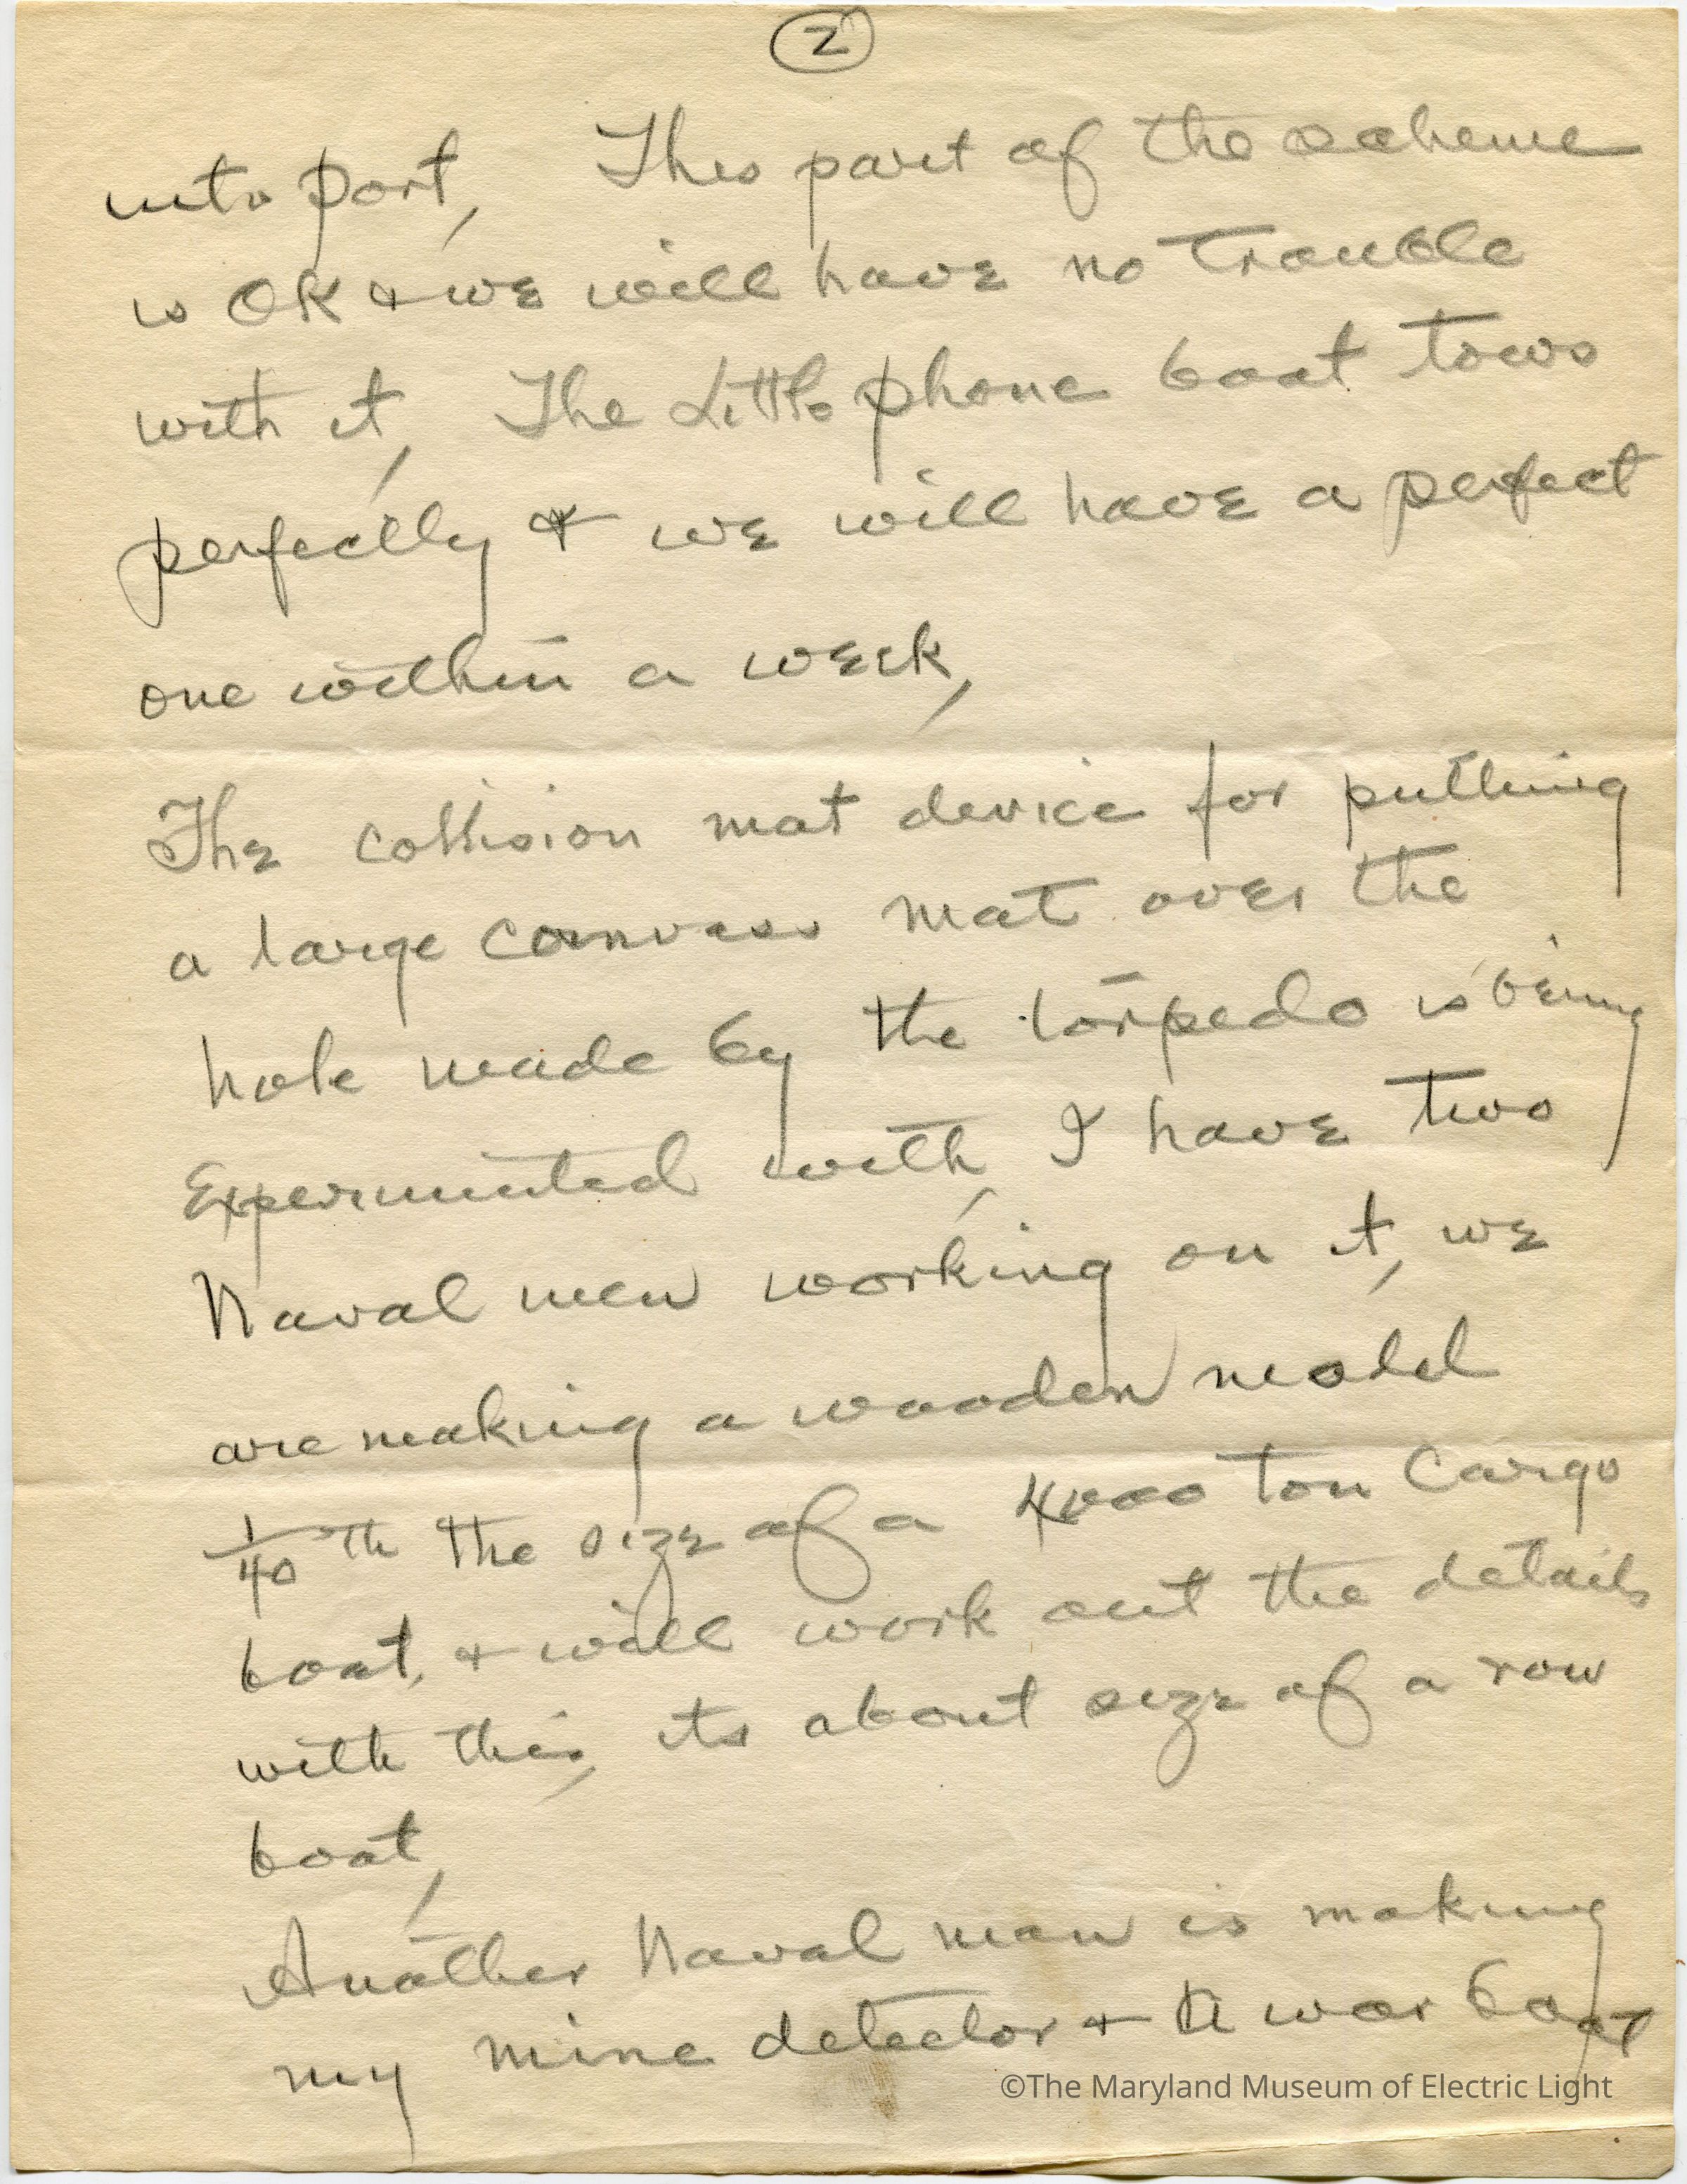 2
into port, This part of the scheme
is OK & we will have no trouble
with it, The Little phone boat tows
perfectly & we will have a perfect
one within a week,
The collision mat device for putting
a large canvass mat over the
hole made by the torpedo is being
Experimented with, I have two
Naval men working on it, we
are making a wooden model
1/40 th the size of a 4000 ton Cargo
boat, & will work out the details
with this, its about size of a row
boat,
Another Naval man is making
my mine detector & A war boat
©The Maryland Museum of Electric Light